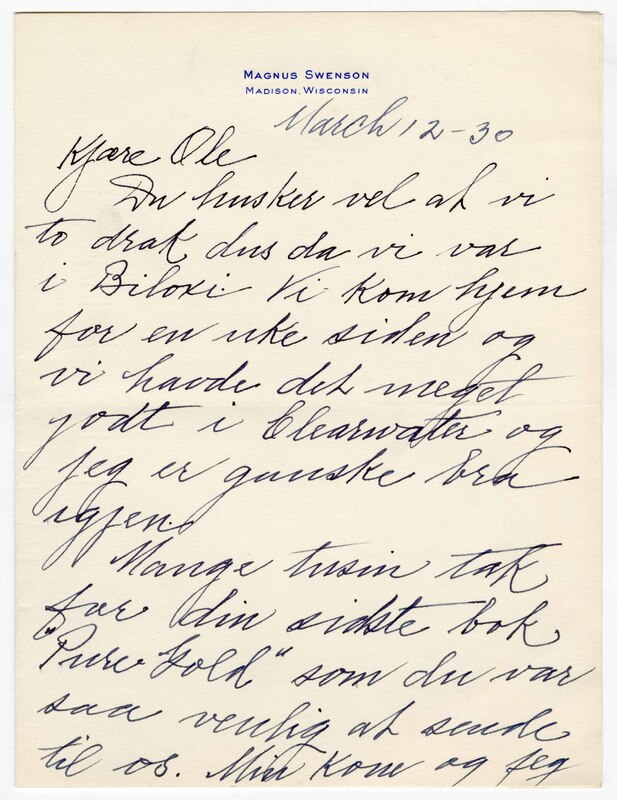 Magnus Swenson
Madison, Wisconsin
March 12-30
Kjære Ole
Du husker vel at vi
to drak dus da vi var
i Biloxi. Vi kom hjem
for en uke siden og
vi havde det meget
godt i Clearwater og
jeg er ganske bra
igjen.
Mange tusin tak
for din sidste bok
"Pure Gold" som du var
saa venlig at sende
til os. Min kone og jeg